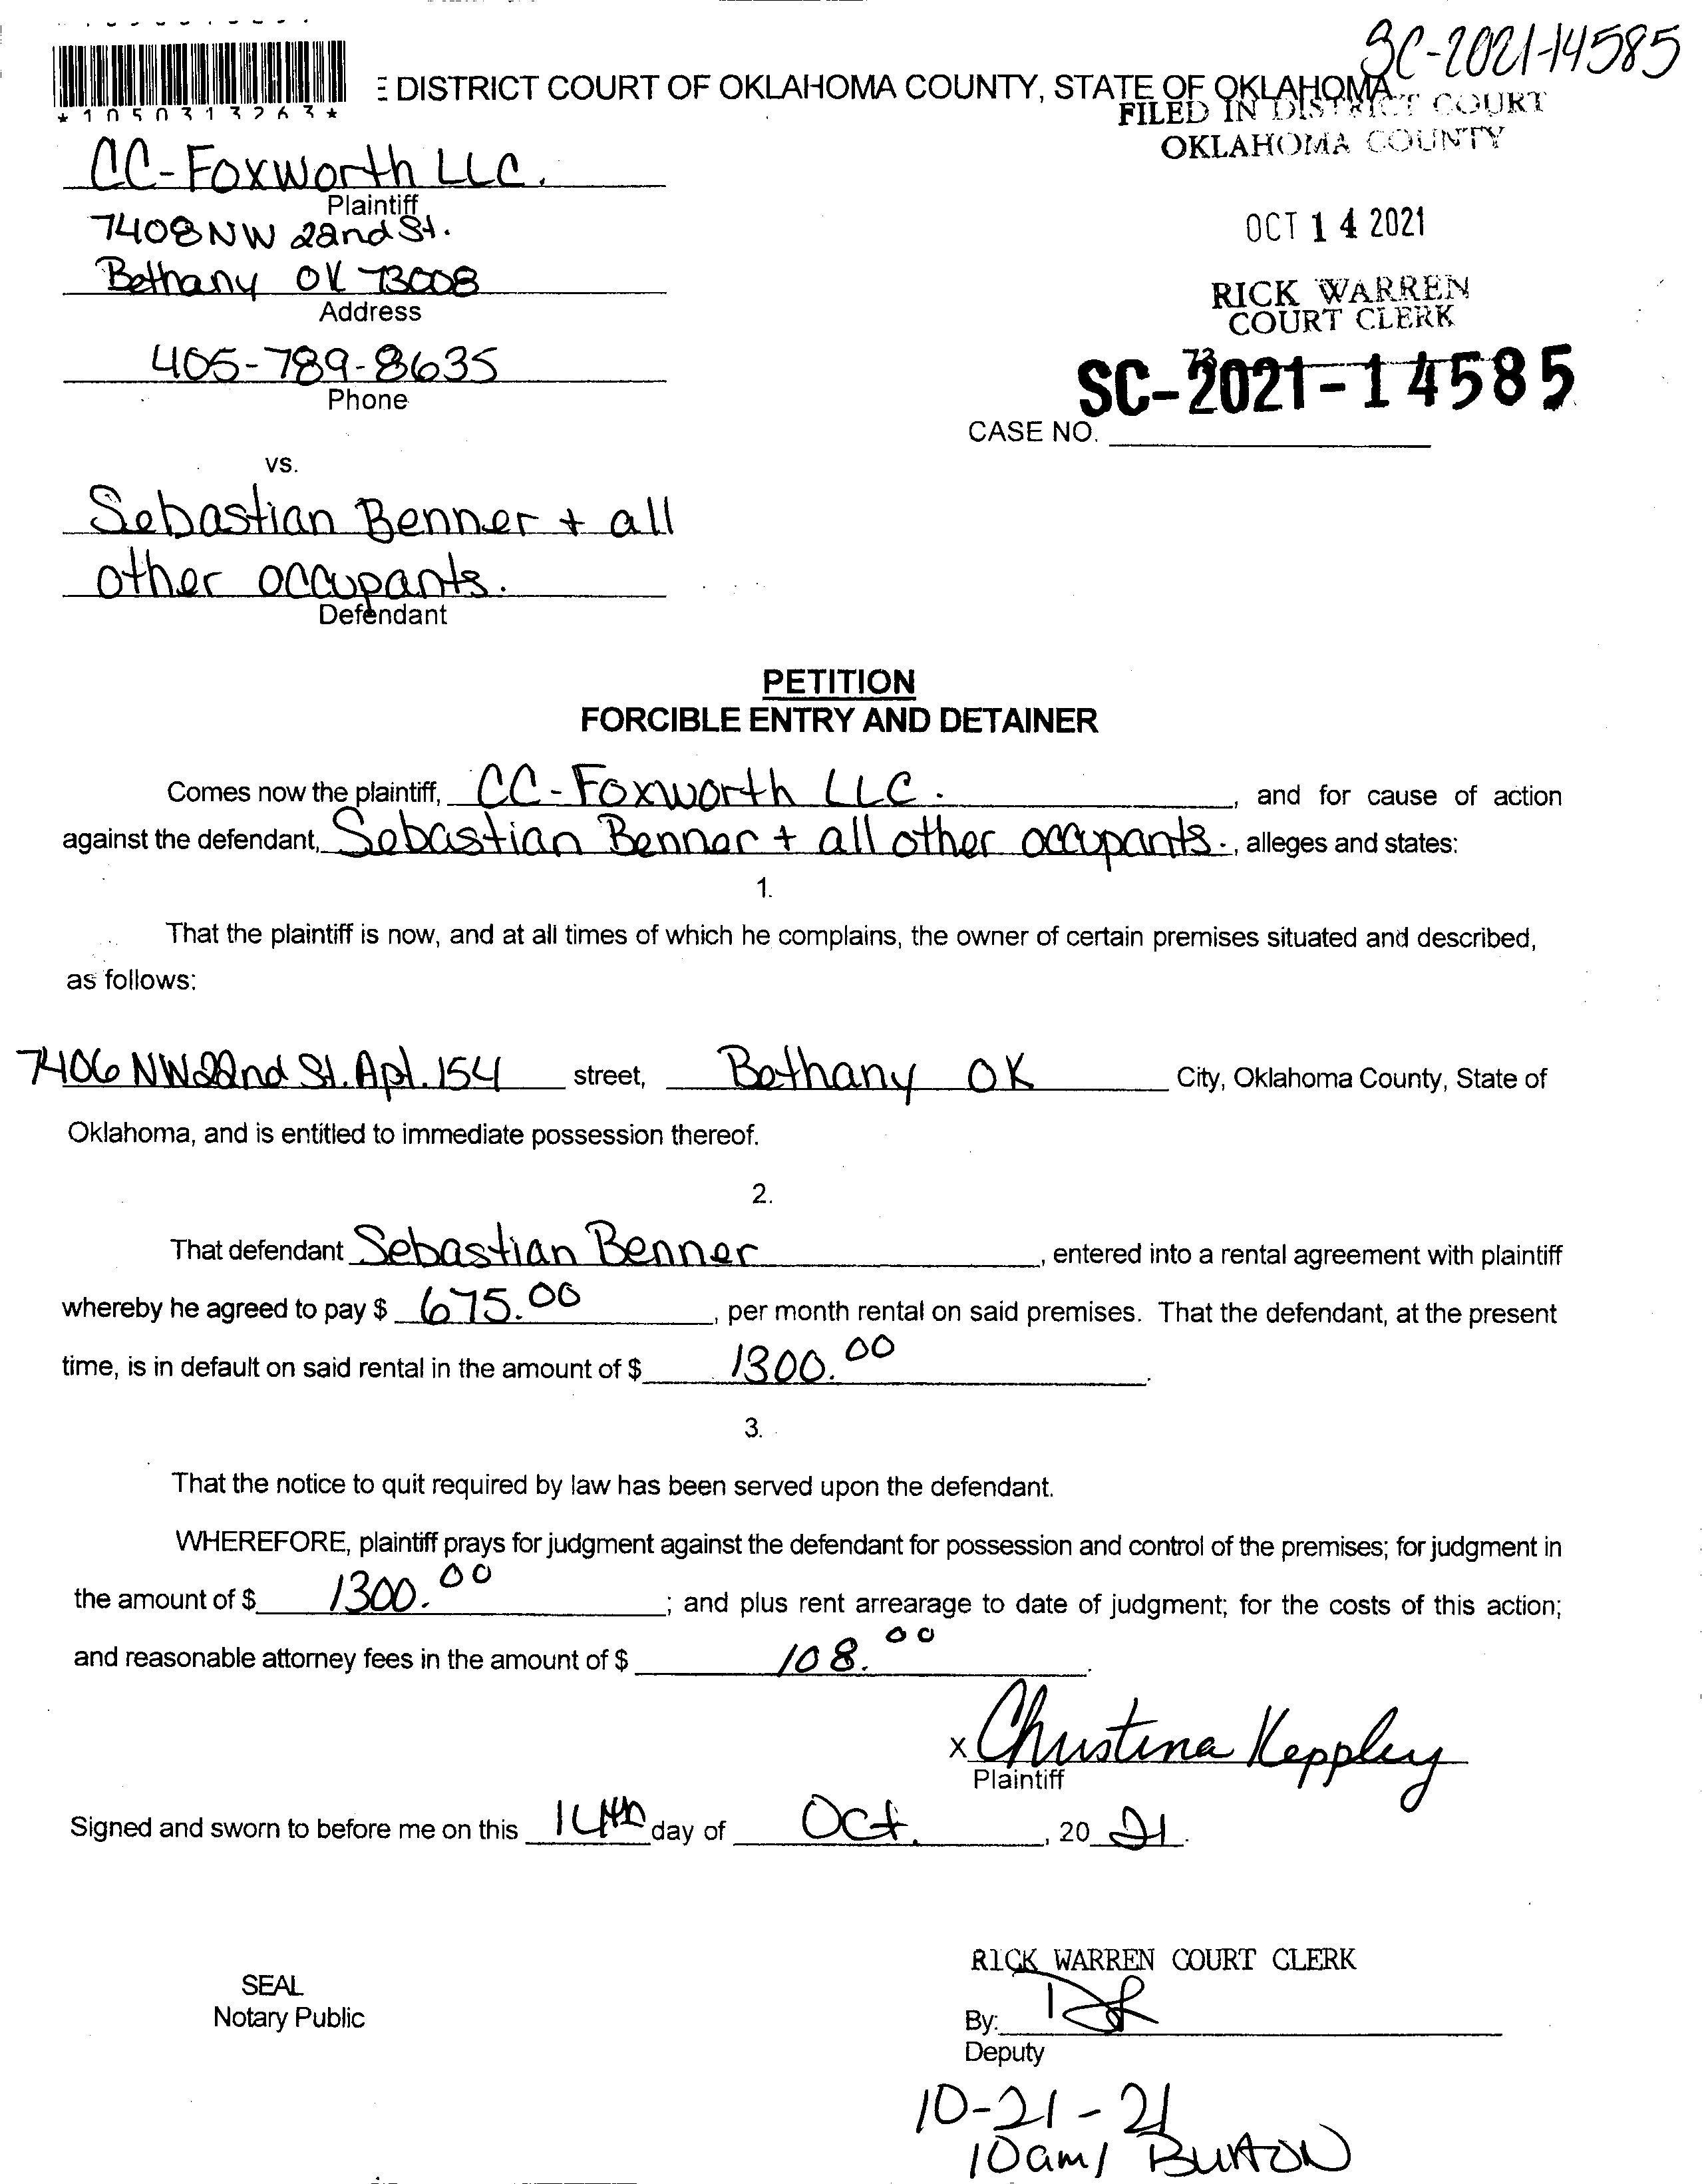 SC-2021-14585
E DISTRICT COURT OF OKLAHOMA COUNTY, STATE OF OKLAHOMA
FILED IN DISTRICT COURT
OKLAHOMA COUNTY
*1050313263*
CC-Foxworth LLC.
Plaintiff
7408 NW 22nd St.
OCT 14 2021
Bethany OK 73008
Address
RICK WARREN
COURT CLERK
405-789-8635
Phone
73
SC-2021-14585
CASE NO.
vs.
Sebastian Benner + all
other occupants.
Defendant
PETITION
FORCIBLE ENTRY AND DETAINER
Comes now the plaintiff, CC-Foxworth LLC. , and for cause of action
against the defendant, Sebastian Benner + all other occupants. , alleges and states:
1.
That the plaintiff is now, and at all times of which he complains, the owner of certain premises situated and described,
as follows:
7406 NW 22nd St. Apt. 154 street, Bethany OK City, Oklahoma County, State of
Oklahoma, and is entitled to immediate possession thereof.
2.
That defendant Sebastian Benner , entered into a rental agreement with plaintiff
whereby he agreed to pay $ 675.00 , per month rental on said premises. That the defendant, at the present
time, is in default on said rental in the amount of $ 1300.00 .
3.
That the notice to quit required by law has been served upon the defendant.
WHEREFORE, plaintiff prays for judgment against the defendant for possession and control of the premises; for judgment in
the amount of $ 1300.00 ; and plus rent arrearage to date of judgment; for the costs of this action;
and reasonable attorney fees in the amount of $ 108.00 .
x Christina Keppley
Plaintiff
Signed and sworn to before me on this 14th day of Oct. , 20 21.
RICK WARREN COURT CLERK
SEAL
Notary Public
By:
Deputy
10-21-21
10am/ Burton